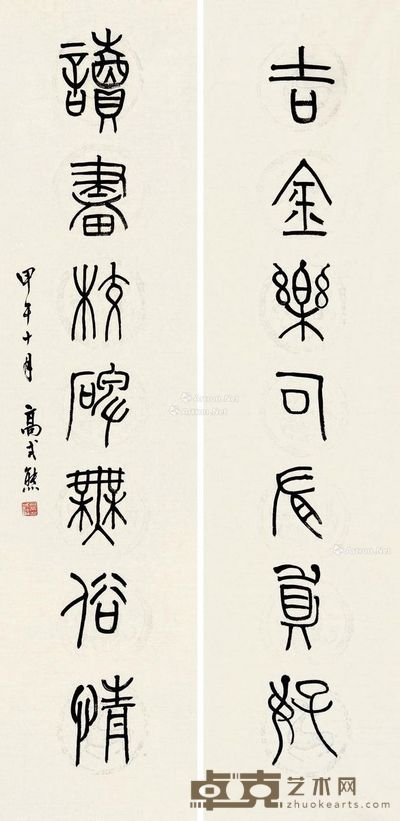 吉金樂可有真好
讀畫校碑無俗情
甲午十月 高式熊
Artron.Net
Artron.Net
Artron.Net
卓克艺术网
zhuokearts.com